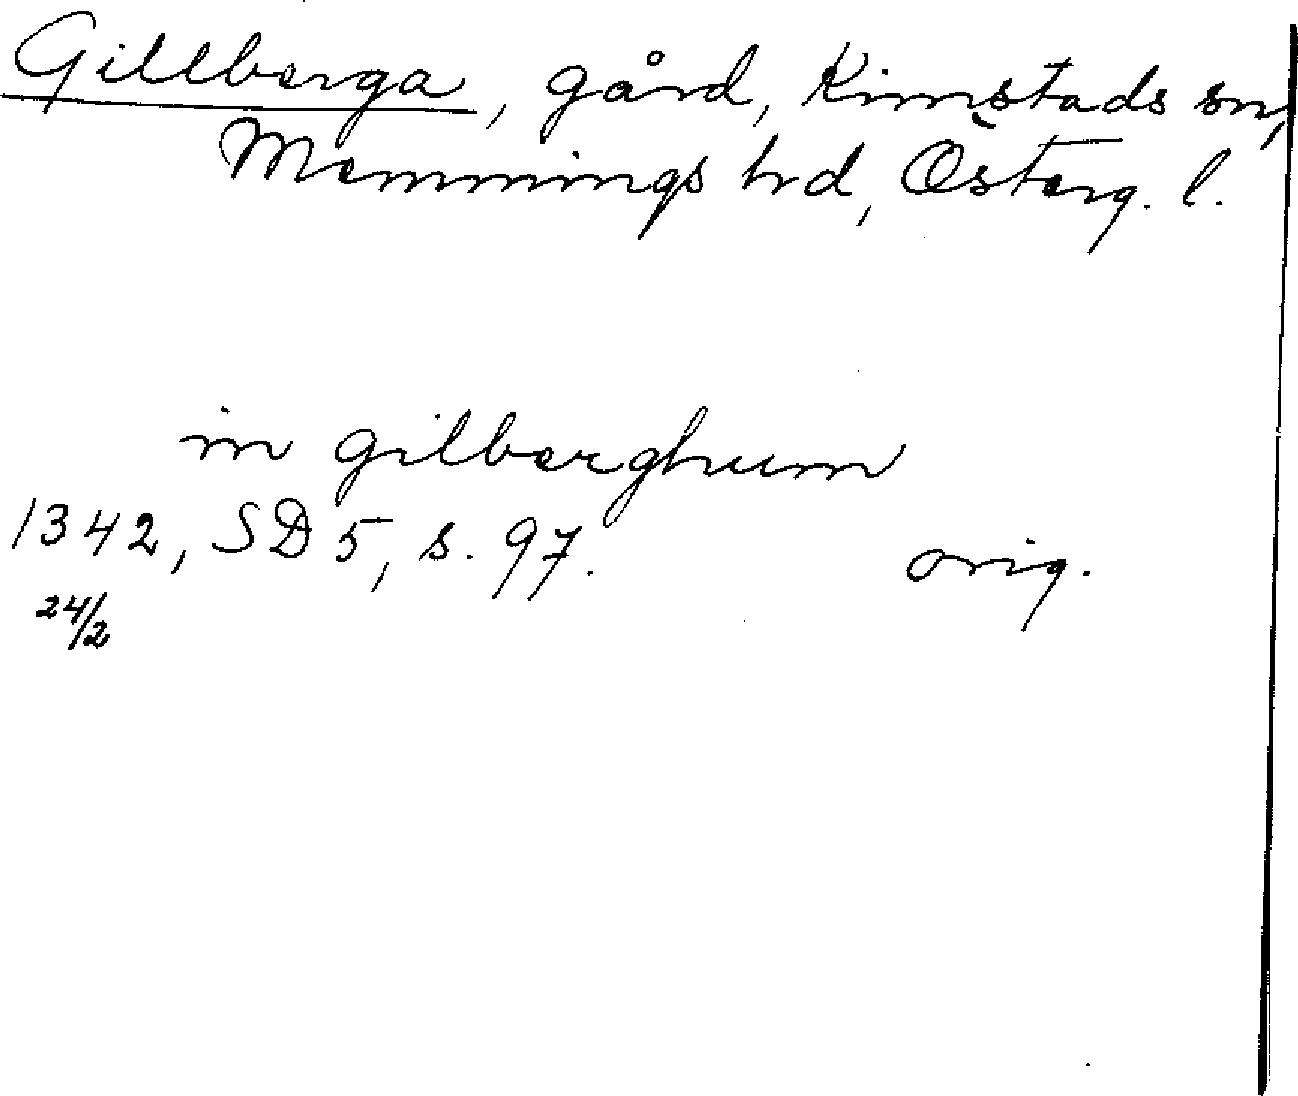 Gillberga, gård, Kimstads sn,
Memmings hd, Österg. l.
in gilberghum
1342, SD 5, s. 97. orig.
24/2